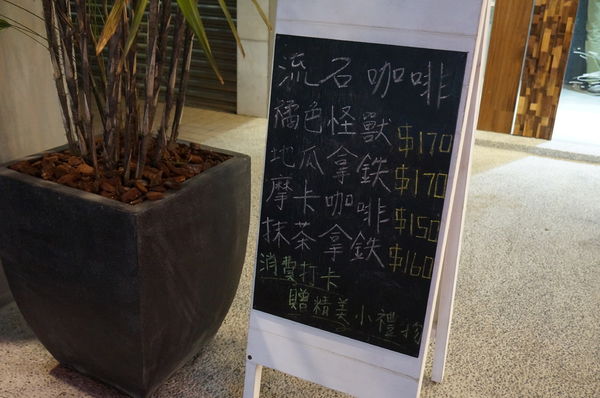 流名咖啡
橘色怪獸 $170
地瓜拿鉄 $170
摩卡咖啡 $150
抹茶拿鉄 $160
消費打卡
贈精美小禮物